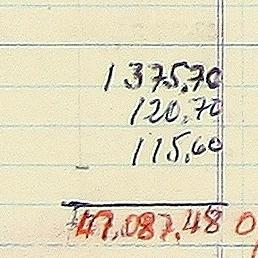 1375,70
120,70
115,60
47.087.48 0